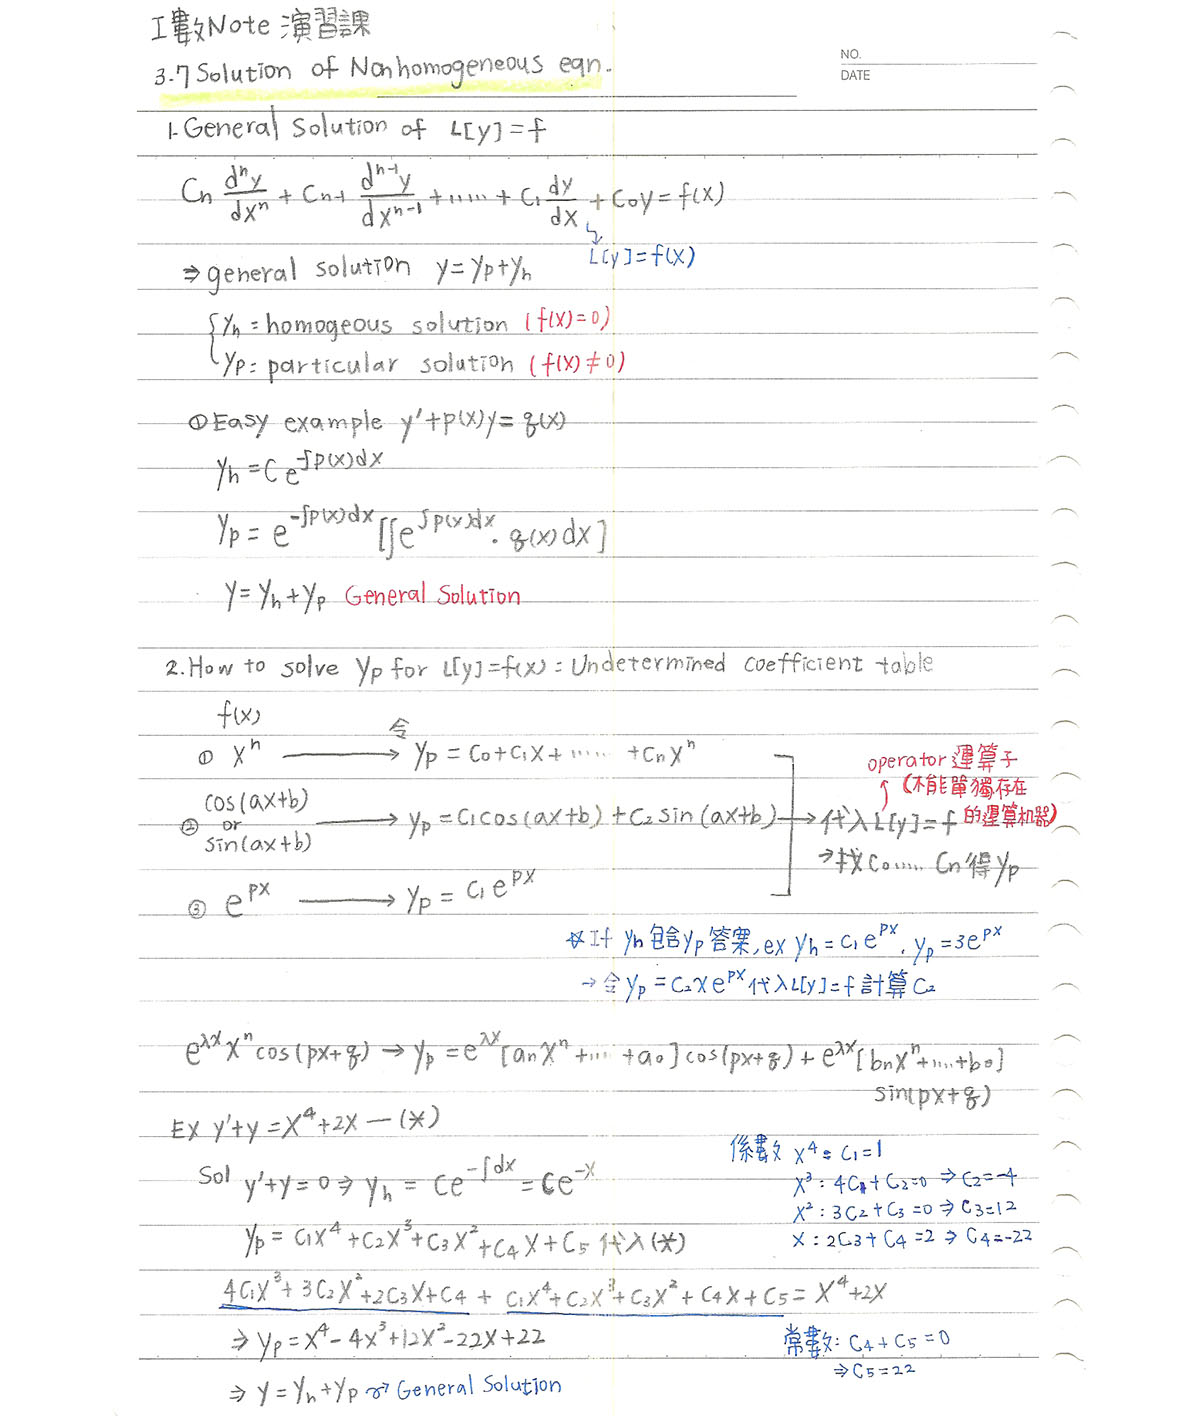 工數Note 演習課
3-7 Solution of Nonhomogeneous eqn.
NO.
DATE
1. General Solution of L[y]=f
Cn dⁿy/dxⁿ + Cn-1 dⁿ⁻¹y/dxⁿ⁻¹ + ...... + C₁ dy/dx + C₀y = f(x)
↳ L[y]=f(x)
⇒ general solution y=yp+yh
{ yh = homogeous solution (f(x)=0)
yp = particular solution (f(x)≠0)
① Easy example y'+p(x)y= q(x)
yh = C e^-∫p(x)dx
yp = e^-∫p(x)dx [∫e^∫p(x)dx · q(x)dx]
y= yh+yp General Solution
2. How to solve yp for L[y]=f(x) : Undetermined coefficient table
f(x)
① xⁿ ⟶ 令 yp = C₀+C₁x+ ...... +Cnxⁿ
② cos(ax+b) or sin(ax+b) ⟶ yp = C₁cos(ax+b) + C₂ sin(ax+b)
③ e^px ⟶ yp = C₁e^px
operator 運算子
(不能單獨存在
的運算机器)
→ 代入L[y]=f
→找C₀...... Cn得yp
☆If yh包含yp答案, ex yh = C₁e^px, yp =3e^px
→令yp =C₂xe^px代入L[y]=f 計算C₂
e^λx xⁿ cos(px+q) → yp = e^λx [anxⁿ +.... +a₀] cos(px+q) + e^λx [bnxⁿ+....+b₀]
sin(px+q)
Ex y'+y = x⁴+2x —(*)
Sol y'+y=0 ⇒ yh = Ce^-∫dx = Ce^-x
yp = C₁x⁴ +C₂x³+C₃x²+C₄x+C₅ 代入(*)
4C₁x³+ 3C₂x²+2C₃x+C₄ + C₁x⁴+C₂x³+C₃x²+ C₄x+C₅= x⁴+2x
⇒ yp=x⁴-4x³+12x²-22x+22
⇒ y=yh+yp → General Solution
係數 x⁴ : C₁=1
x³ : 4C₁+C₂=0 ⇒ C₂=-4
x² : 3C₂+C₃=0 ⇒ C₃=12
x : 2C₃+ C₄ =2 ⇒ C₄=-22
常數: C₄+C₅=0
⇒C₅=22